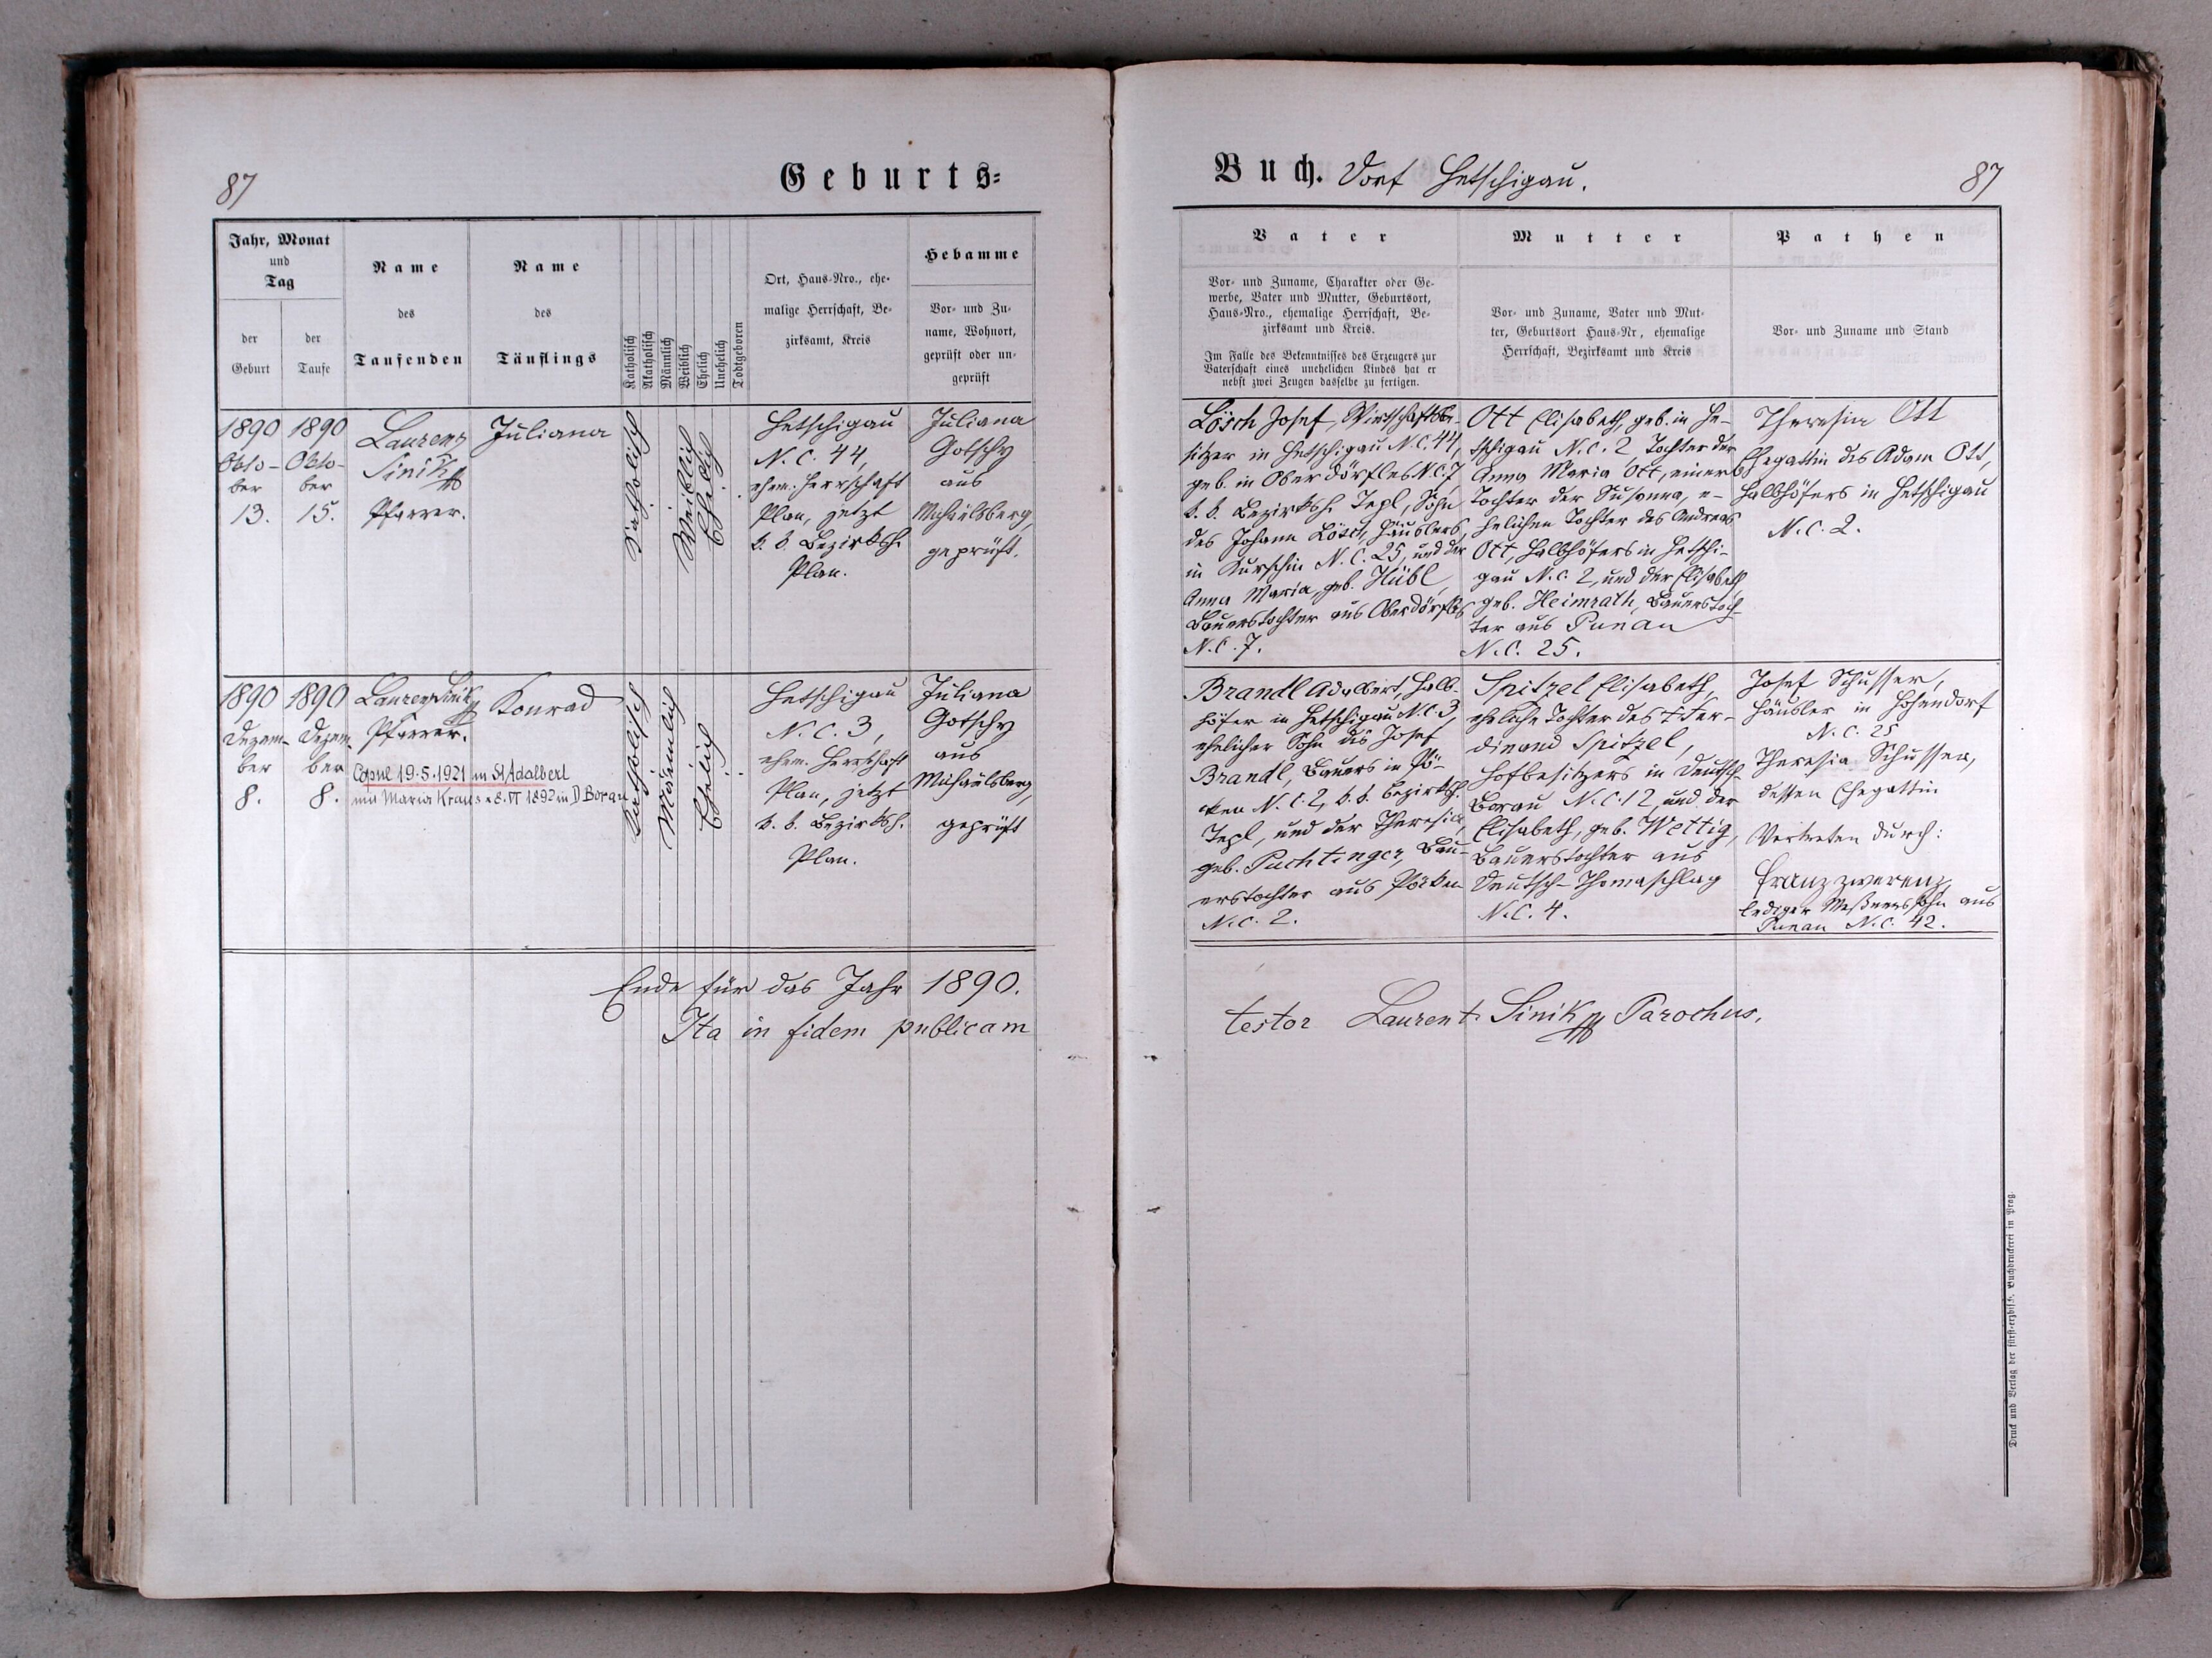 87
Geburts=
Jahr, Monat
und
Tag
der
Geburt
der
Taufe
Name
des
Taufenden
Name
des
Täuflings
Katholisch
Akatholisch
Männlich
Weiblich
Ehelich
Unehelich
Todtgeboren
Ort, Haus-Nro., ehe-
malige Herrschaft, Be-
zirksamt, Kreis
Hebamme
Vor- und Zu-
name, Wohnort,
geprüft oder un-
geprüft
1890
Okto-
ber
13.
1890
Okto-
ber
15.
Laurenz
Sinik
Pfarrer.
Juliana
Katholisch
Weiblich
Ehelich
Hetschigau
N. C. 44,
ehem. Herrschaft
Plan, jetzt
k. k. Bezirksh.
Plan.
Juliana
Gotschy
aus
Michaelsberg,
geprüft.
1890
Dezem-
ber
8.
1890
Dezem-
ber
8.
Laurenz Sinik
Pfarrer.
Copul 19.5.1921 in St Adalbert
mit Maria Kraus * 8. VI 1892 in D Borau
Konrad
Katholisch
Männlich
Ehelich
Hetschigau
N. C. 3,
ehem. Herrschaft
Plan, jetzt
k. k. Bezirksh.
Plan.
Juliana
Gotschy
aus
Michaelsberg,
geprüft
Ende für das Jahr 1890.
Ita in fidem publicam
Buch. Dorf Hetschigau.
87
Vater
Vor- und Zuname, Charakter oder Ge-
werbe, Vater und Mutter, Geburtsort,
Haus-Nro., ehemalige Herrschaft, Be-
zirksamt und Kreis.
Im Falle des Bekenntnisses des Erzeugers zur
Vaterschaft eines unehelichen Kindes hat er
nebst zwei Zeugen dasselbe zu fertigen.
Mutter
Vor- und Zuname, Vater und Mut-
ter, Geburtsort Haus-Nr, ehemalige
Herrschaft, Bezirksamt und Kreis
Pathen
Vor- und Zuname und Stand
Lösch Josef, Wirtschaftsbe-
sitzer in Hetschigau N. C. 44,
geb. in Oberdörfles N.C. 7
k. k. Bezirksh. Tepl, Sohn
des Johann Lösch, Häuslers
in Kurschin N. C. 25, und der
Anna Maria, geb. Hübl,
Bauerstochter aus Oberdörfles
N. C. 7.
Ott Elisabeth, geb. in He-
tschigau N. C. 2, Tochter der
Anna Maria Ott, einer
Tochter der Susanna, e-
helichen Tochter des Andreas
Ott, Halbhöfers in Hetschi-
gau N. C. 2, und der Elisabeth
geb. Heimrath, Bauerstoch-
ter aus Punau
N. C. 25.
Theresia Ott
Ehegattin des Adam Ott,
Halbhöfers in Hetschigau
N. C. 2.
Brandl Adalbert, Halb-
höfer in Hetschigau N. C. 3,
ehelicher Sohn des Josef
Brandl, Bauers in Pö-
cken N. C. 2, k. k. Bezirksh.
Tepl, und der Theresia,
geb. Puchtinger, Bau-
erstochter aus Pöcken
N. C. 2.
Spitzel Elisabeth,
eheliche Tochter des † Fer-
dinand Spitzel,
Hofbesitzers in Deutsch
Borau N. C. 12, und der
Elisabeth, geb. Wettig,
Bauerstochter aus
Deutsch-Thomaschlag
N. C. 4.
Josef Schusser,
Häusler in Hohendorf
N. C. 25
Theresia Schusser,
dessen Ehegattin
Vertreten durch:
Franz Zwerenz,
lediger Meßnerssohn aus
Punau N. C. 42.
testor Laurent. Sinik Parochus.
Druck und Verlag der fürst-erzbisch. Buchdruckerei in Prag.